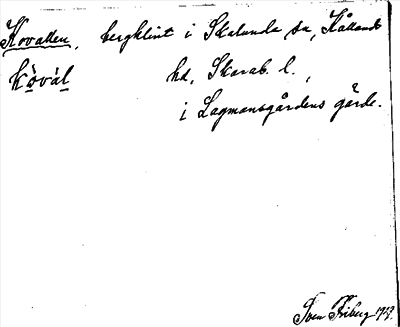 Kovallen, bergklint i Skalunda sn, Kållands
kòvál hd, Skarab. l.,
i Lagmansgårdens gärde.
Sven Friberg